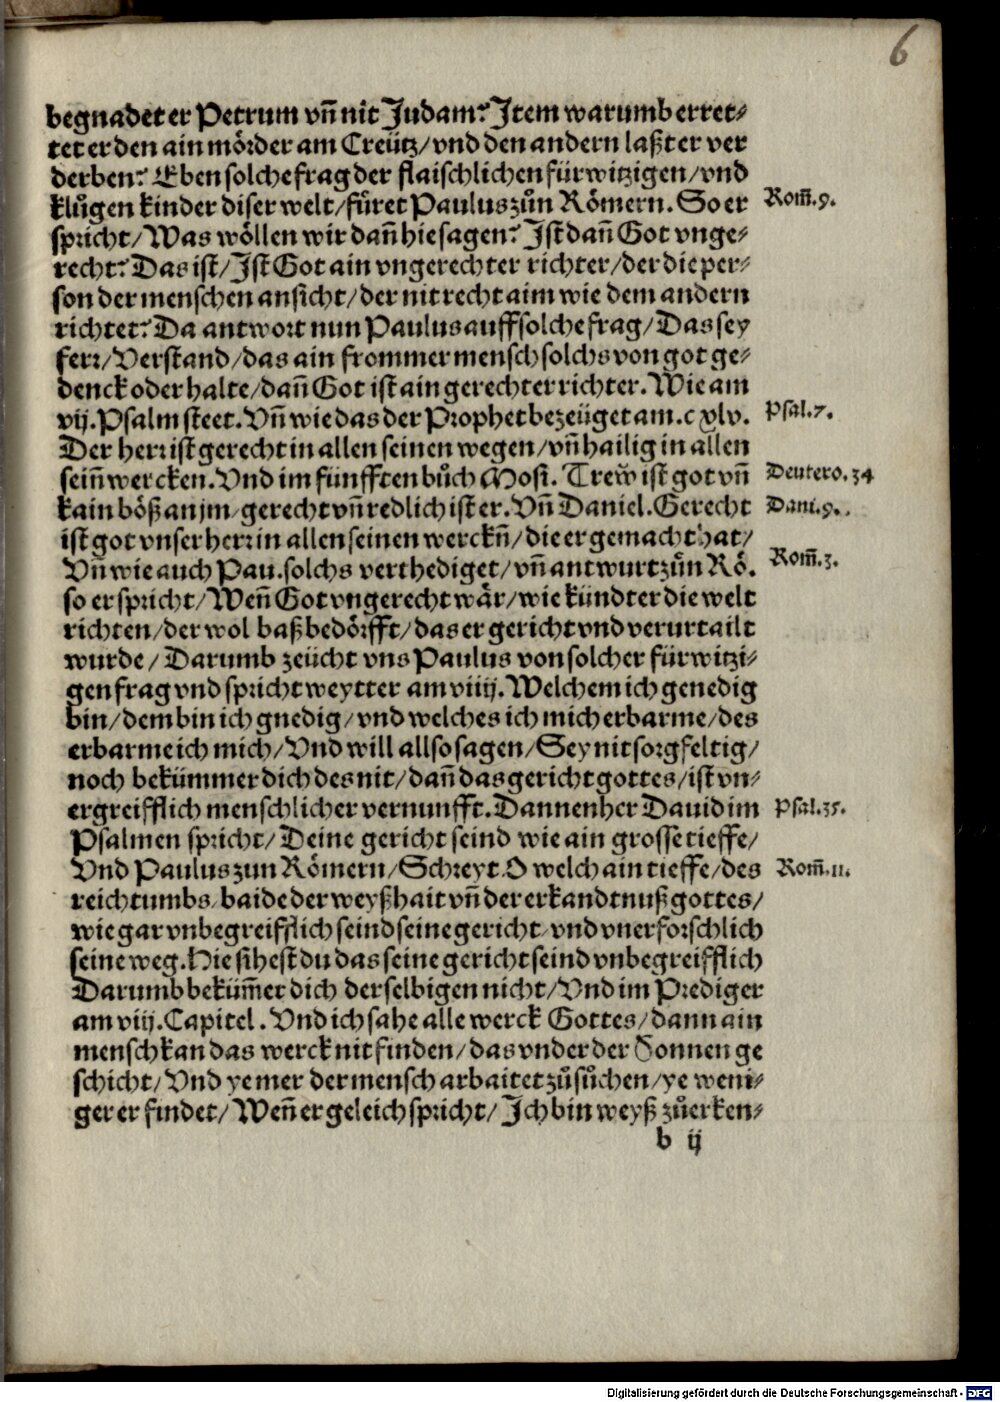 6
begnadet er Petrum vn̄ nit Judam? Item warumb erret-
tet er den ain mörder am Creütz/ vnd den andern laßt er ver
derben? Eben solche frag der flaischlichen fürwitzigen/ vnd
klůgen kinder diser welt/ fůret Paulus zůn Römern. So er
Rom̄. 9.
spricht/ Was wöllen wir dañ hie sagen? Ist dañ Got vnge-
recht? Das ist/ Ist Got ain vngerechter richter/ der die per-
son der menschen ansicht/ der nit recht aim wie dem andern
richtet? Da antwort nun Paulus auff solche frag/ Das sey
ferr/ Verstand/ das ain frommer mensch solchs von got ge-
denck oder halte/ dañ Got ist ain gerechter richter. Wie am
vij. Psalm steet. Vn̄ wie das der Prophet bezeüget am. cxlv.
Psal. 7.
Der herr ist gerecht in allen seinen wegen/ vn̄ hailig in allen
sein̄ wercken. Vnd im fünfften bůch Mosi. Trew̌ ist got vn̄
Deutero. 34
kain böß an jm/ gerecht vn̄ redlich ist er. Vn̄ Daniel. Gerecht
Dani. 9.
ist got vnser herr in allen seinen werckn̄/ die er gemacht hat/
Vn̄ wie auch Pau. solchs verthediget/ vn̄ antwurt zůn Rö.
Rom̄. 3.
so er spricht/ Wen̄ Got vngerecht wår/ wie kündt er die welt
richten/ der wol baß bedörfft/ das er gericht vnd verurtailt
wurde/ Darumb zeücht vns Paulus von solcher fürwitzi-
gen frag vnd spricht weytter am viiij. Welchem ich genedig
bin/ dem bin ich gnedig/ vnd welches ich mich erbarme/ des
erbarme ich mich/ Vnd will allso sagen/ Sey nit sorgfeltig/
noch bekümmer dich des nit/ dañ das gericht gottes/ ist vn-
ergreifflich menschlicher vernunfft. Dannenher Dauid im
Psal. 35.
Psalmen spricht/ Deine gericht seind wie ain grosse tieffe/
Vnd Paulus zun Römern/ Schreyt. O welch ain tieffe/ des
Rom̄. 11.
reichtumbs/ baide der weyßhait vn̄ der erkandtnuß gottes/
wie gar vnbegreifflich seind seine gericht/ vnd vnerforschlich
seine weg. Hie sihest du das seine gericht seind vnbegreifflich
Darumb beküm̄er dich derselbigen nicht/ Vnd im Prediger
am viij. Capitel. Vnd ich sahe alle werck Gottes/ dann ain
mensch kan das werck nit finden/ das vnder der Sonnen ge
schicht/ Vnd ye mer der mensch arbaitet zůsůchen/ ye weni-
ger er findet/ Wen̄ er geleich spricht/ Ich bin weyß zůerken-
b ij
Digitalisierung gefördert durch die Deutsche Forschungsgemeinschaft - DFG